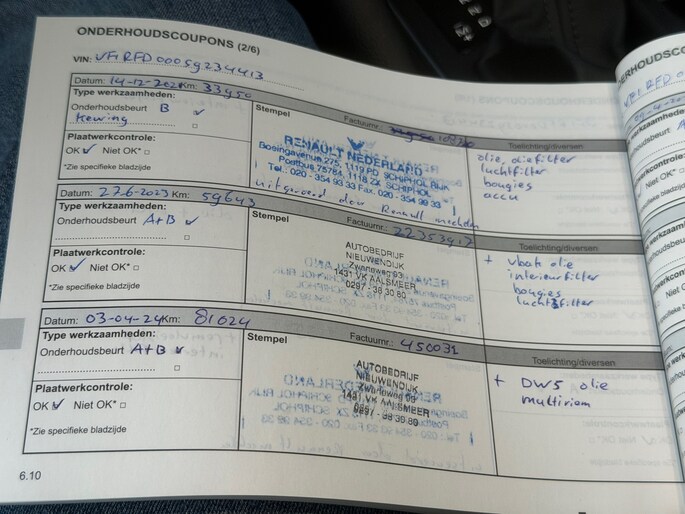 ONDERHOUDSCOUPONS (2/6)
VIN: VF1RFD00059234413
Datum: 14-12-2021 Km: 33950
Type werkzaamheden:
Onderhoudsbeurt B
Keuring
Plaatwerkcontrole:
OK Niet OK*
*Zie specifieke bladzijde
Stempel
Factuurnr.
RENAULT NEDERLAND
Boeingavenue 275, 1119 PD SCHIPHOL RIJK
Postbus 75784, 1118 ZX SCHIPHOL
Tel.: 020 - 354 93 33 Fax. 020 - 354 99 33
uitgevoerd door Renault
Toelichting/diversen
olie, oliefilter
luchtfilter
bougies
accu
Datum: 27-6-2023 Km: 59643
Type werkzaamheden:
Onderhoudsbeurt A+B
Plaatwerkcontrole:
OK Niet OK*
*Zie specifieke bladzijde
Stempel
Factuurnr.
AUTOBEDRIJF
NIEUWENDIJK
Zwarteweg 93
1431 VK AALSMEER
0297 - 38 30 80
Toelichting/diversen
+ vbak olie
interieurfilter
bougies
luchtfilter
Datum: 03-04-24 Km: 81024
Type werkzaamheden:
Onderhoudsbeurt A+B
Plaatwerkcontrole:
OK Niet OK*
*Zie specifieke bladzijde
Stempel
Factuurnr. 450031
AUTOBEDRIJF
NIEUWENDIJK
Zwarteweg 93
1431 VK AALSMEER
0297 - 38 30 80
Toelichting/diversen
+ DW5 olie
multiriem
6.10